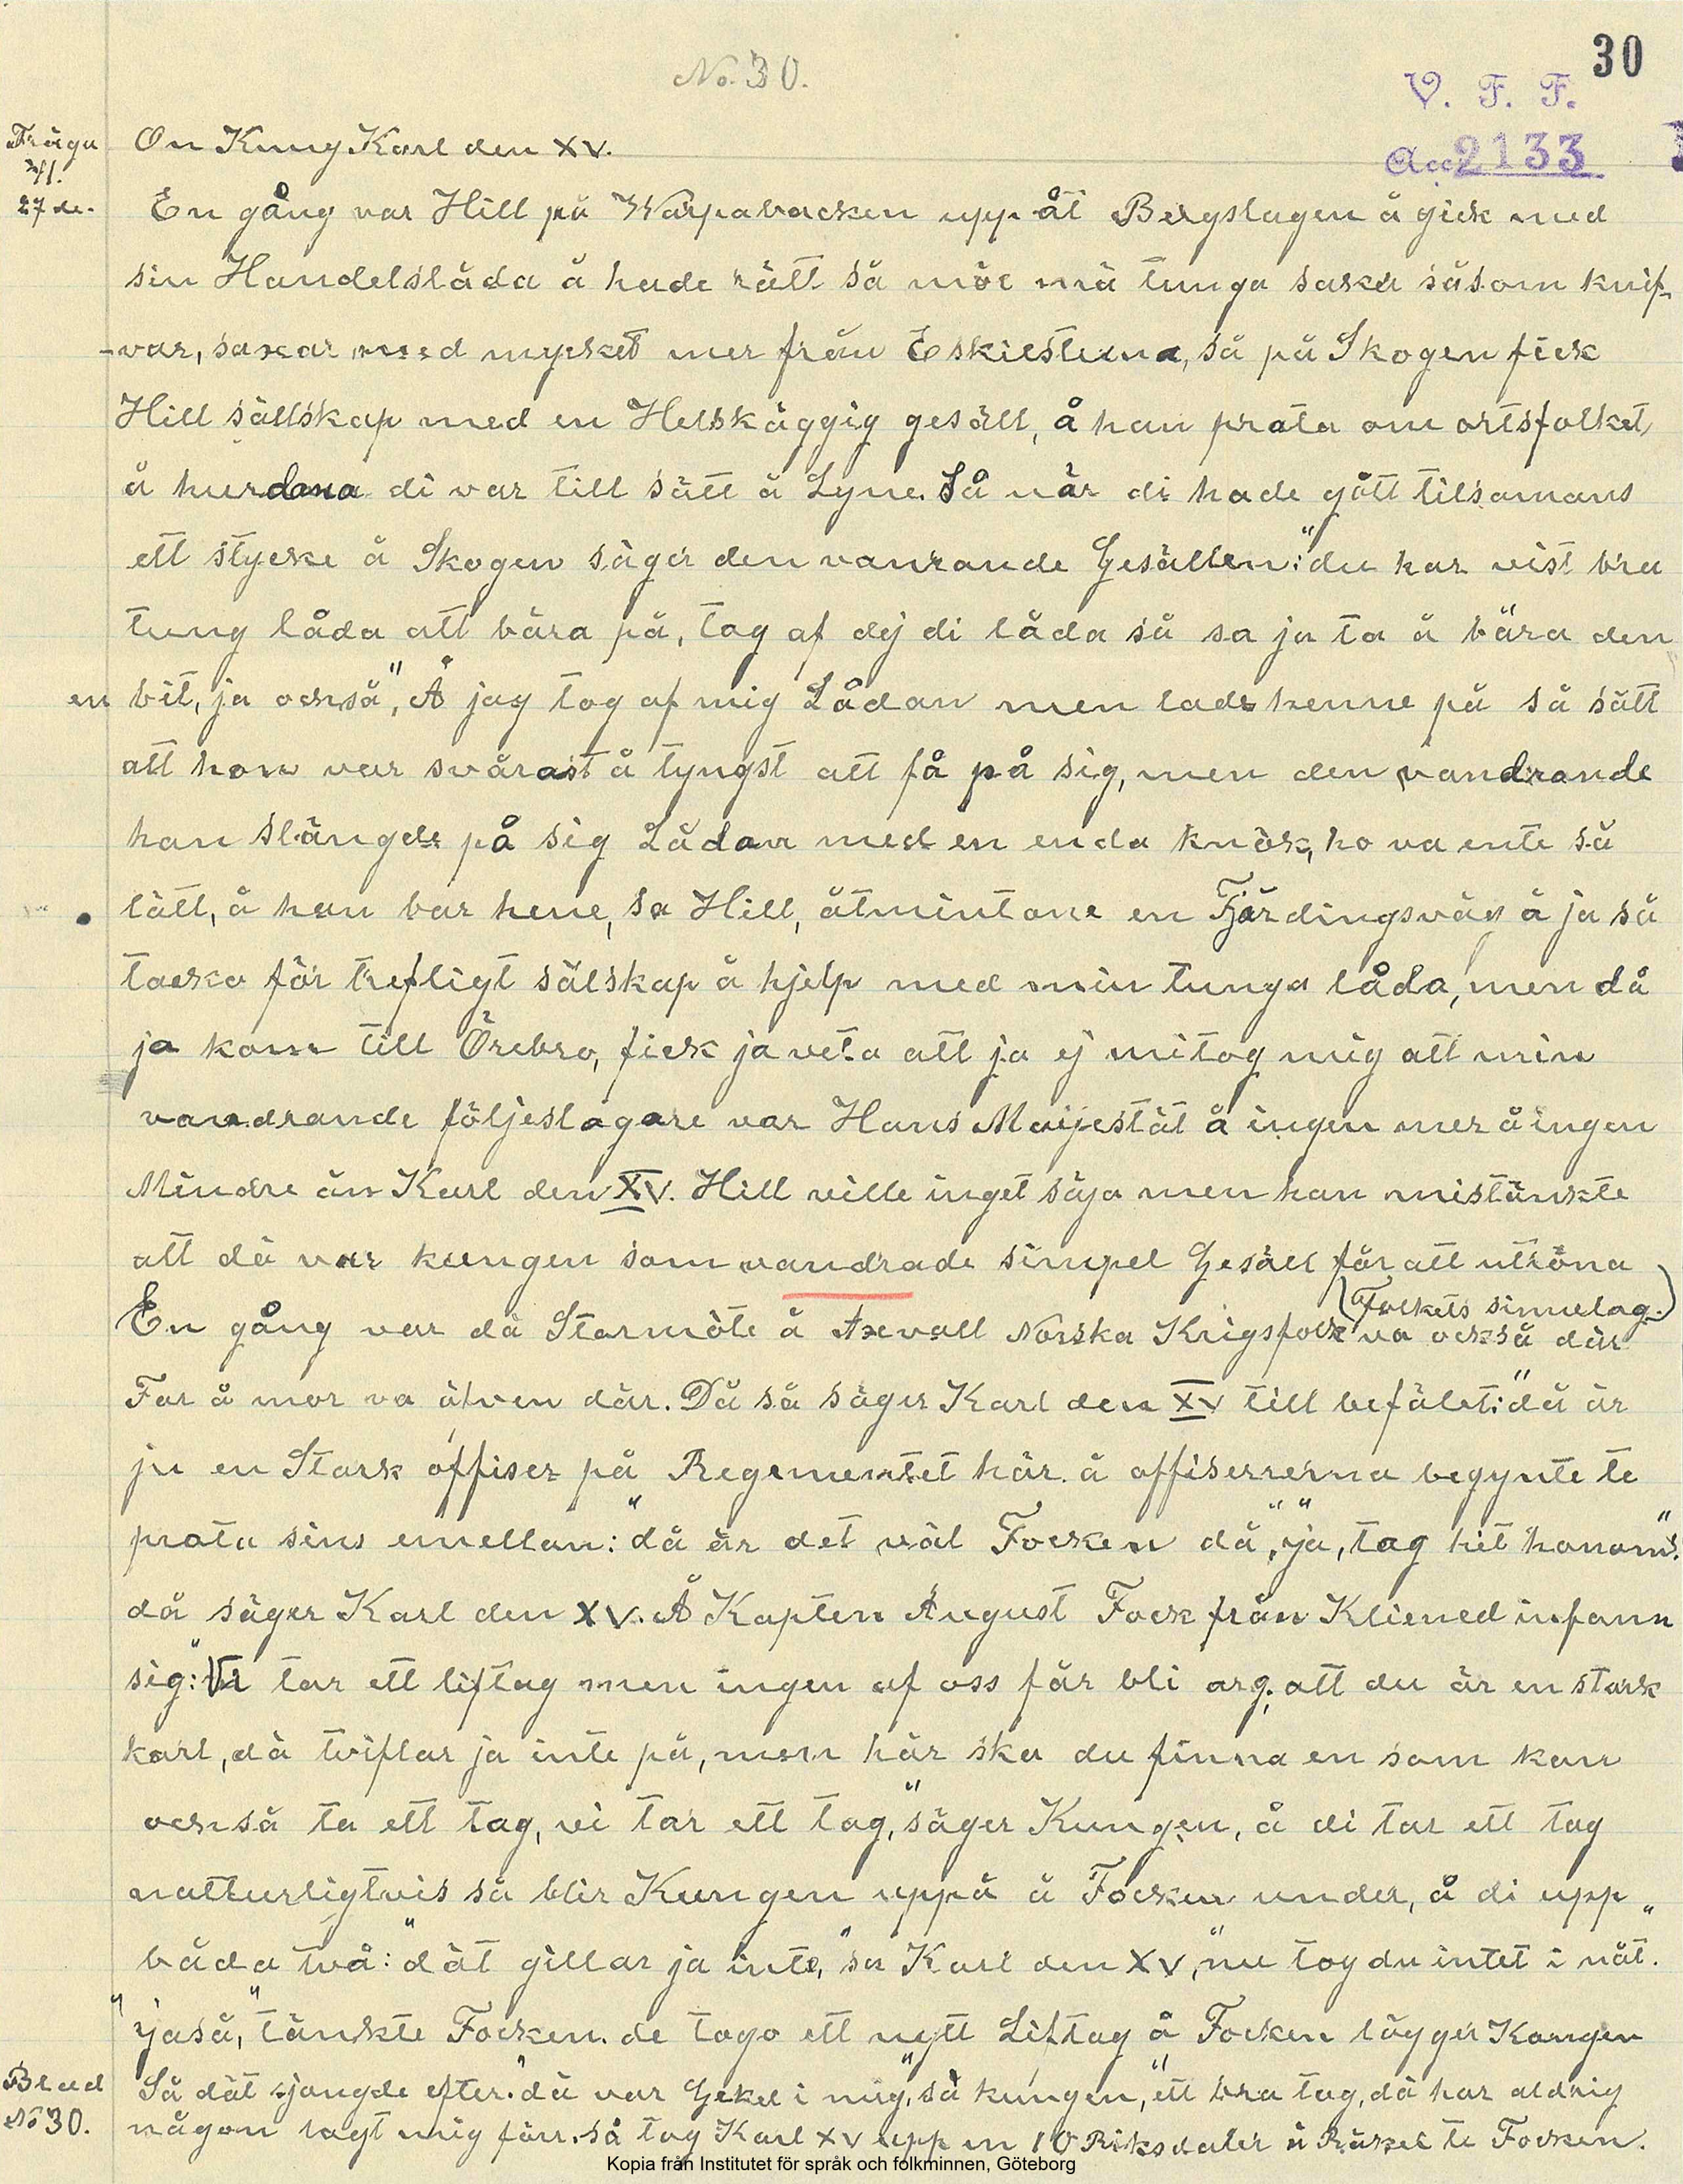 30
No. 30.
V. F. F.
Acc. 2133
Fråga
27 de.
Om Kung Karl den XV.
En gång var Hill på Wärpabacken upp åt Bergslagen å gick med
sin Handelslåda å hade rätt så möe mä tunga saker såsom knif-
-var, saxar med mycket mer från Eskilstuna, så på Skogen fick
Hill sällskap med en Helskäggig gesäll, å han prata om ortsfolket,
å hurdana di var till sätt å Lyne. Så när di hade gått tilsamans
ett stycke å Skogen säger den vanrande Gesällen: "du har vist bra
tung låda att bära på, tag af dej di låda så sa ja ta å bära den
en bit, ja också", Å jag tog af mig Lådan men lade henne på så sätt
att hon var svårast å tyngst att få på sig, men den vandrande
han slängde på sig Lådan med en enda knök, ho va ente så
lätt, å han bar hene, sa Hill, åtmintone en Fjärdingsväg å ja så
tacka för trefligt sälskap å hjelp med min tunga låda, men då
ja kom till Örebro, fick ja veta att ja ej mitog mig att min
vandrande följeslagare var Hans Majestät å ingen mer å ingen
Mindre än Karl den XV. Hill ville inget säja men han mistänkte
att dä var kungen som vandrade simpel Gesäll för att utröna
(Folkets sinnelag.)
En gång var dä Stormöte å Axevall Norska Krigsfolk va också där
Far å mor va äfven där. Då så säger Karl den XV till befälet: "då är
ju en Stark offiser på Regementet här. å offiserrerna begynte te
prata sins emellan: "då är det väl Focken då", "ja, tag hit honom".
då säger Karl den XV. Å Kapten August Fock från Kliened infann
sig: "Vi tar ett liftag men ingen af oss får bli arg. att du är en stark
karl, dä tviflar ja inte på, men här ska du finna en som kan
också ta ett tag, vi tar ett tag," säger Kungen, å di tar ett tag
natturligtvis så blir Kungen uppå å Focken under, å di upp
båda två: "dät gillar ja inte," sa Karl den XV, "nu tog du intet i nåt."
"jaså," tänkte Focken. de togo ett nytt Liftag å Focken lägger Kongen
Så dät sjongde efter. "dä var Gekel i mig," sa kungen, "ett bra tag, dä har aldrig
någon tagt mig förr. så tog Karl XV upp en 10 Riksdaler å Räket te Focken.
Blad
No 30.
Kopia från Institutet för språk och folkminnen, Göteborg